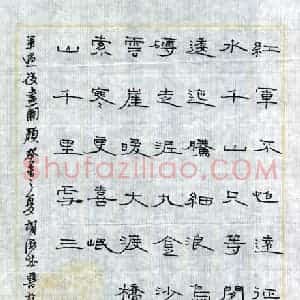 紅軍不怕遠征
水千山只等閒
逶迤騰細浪烏
礴走泥丸金沙
雲崖暖大渡橋
索寒更喜岷
山千里雪三
軍過後盡開顏
Shufaziliao.com